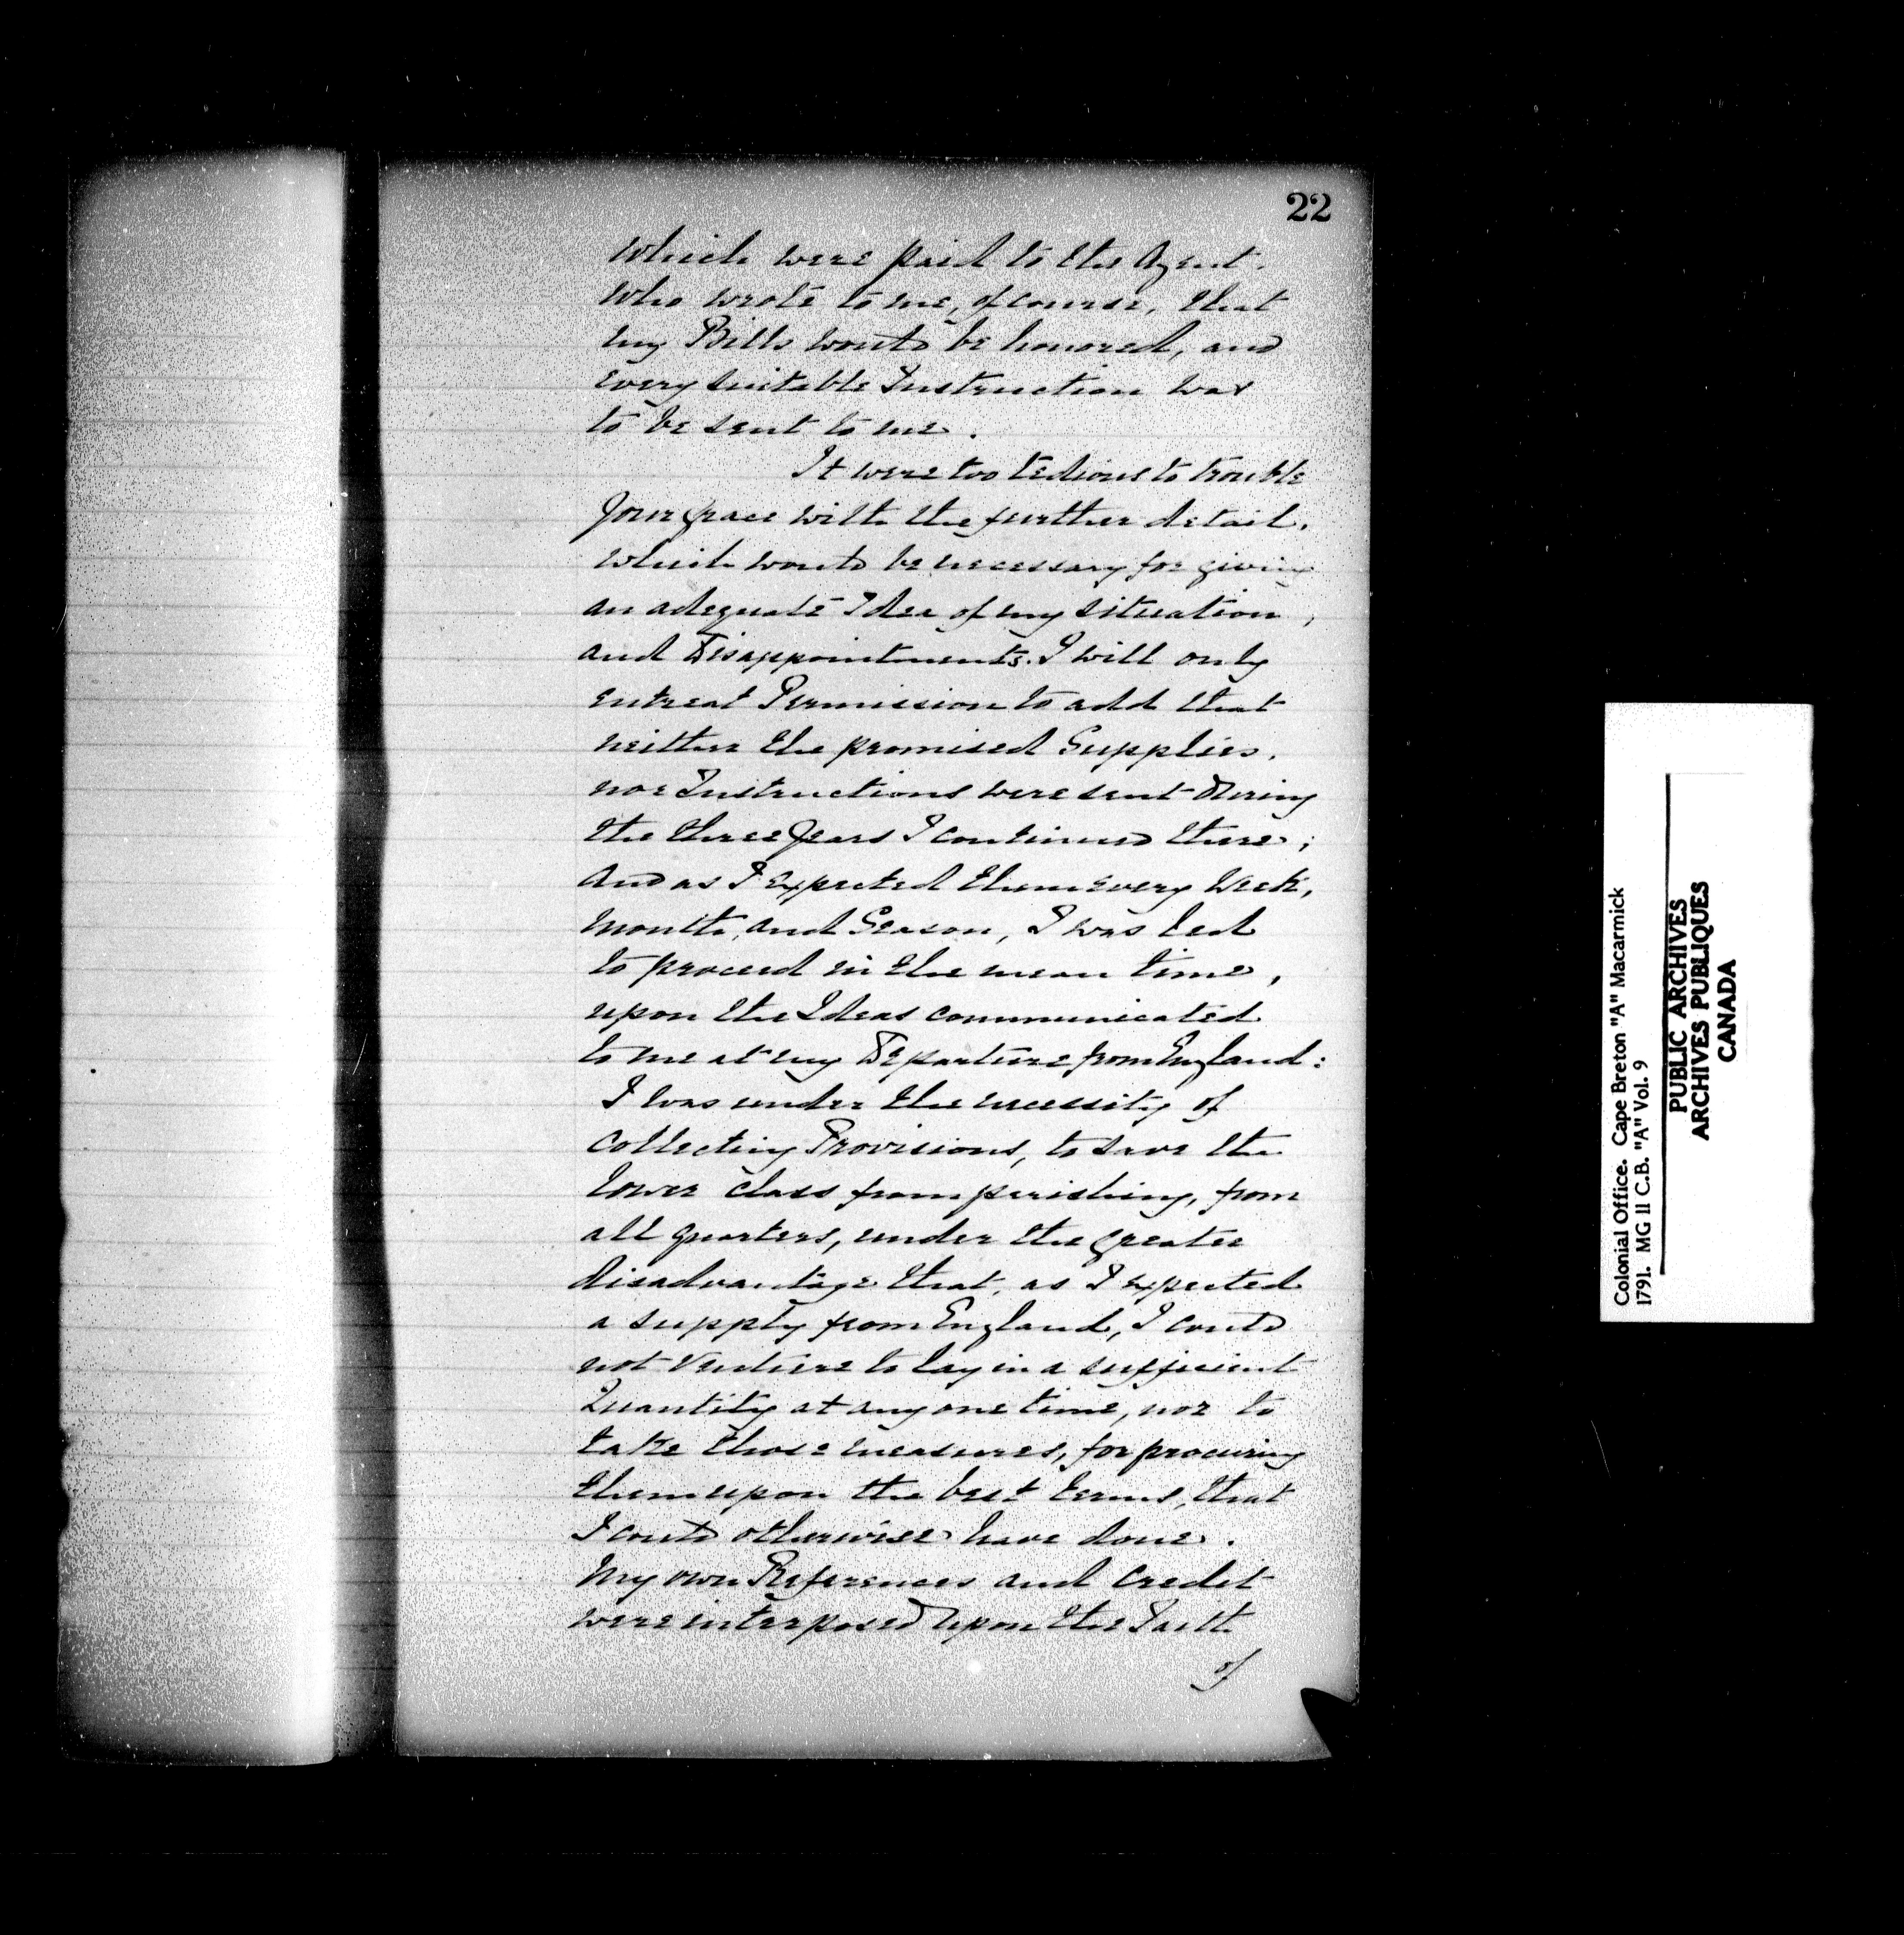 22
which were paid to the Agent.
who wrote to me, of course, that
my Bills would be honored, and
every suitable Instruction was
to be sent to me.
It were too tedious to trouble
Your Grace with the further detail.
which would be necessary for giving
an adequate Idea of my situation,
and Disappointments. I will only
entreat Permission to add that
neither the promised Supplies.
nor Instructions were sent During
the three Years I continued there;
And as I expected them every Week,
Month, and Season, I was led
to proceed in the mean time,
upon the Ideas communicated
to me at my Departure from England:
I was under the necessity of
collecting Provisions, to save the
lower class from perishing, from
all quarters, under the greater
disadvantage that, as I expected
a supply from England, I could
not Venture to lay in a sufficient
Quantity at any one time, nor to
take those measures, for procuring
them upon the best terms, that
I could otherwise have done.
My own References and Credit
were interposed upon the Faith
of
Colonial Office. Cape Breton "A" Macarmick
1791. MG 11 C.B. "A" Vol. 9
PUBLIC ARCHIVES
ARCHIVES PUBLIQUES
CANADA